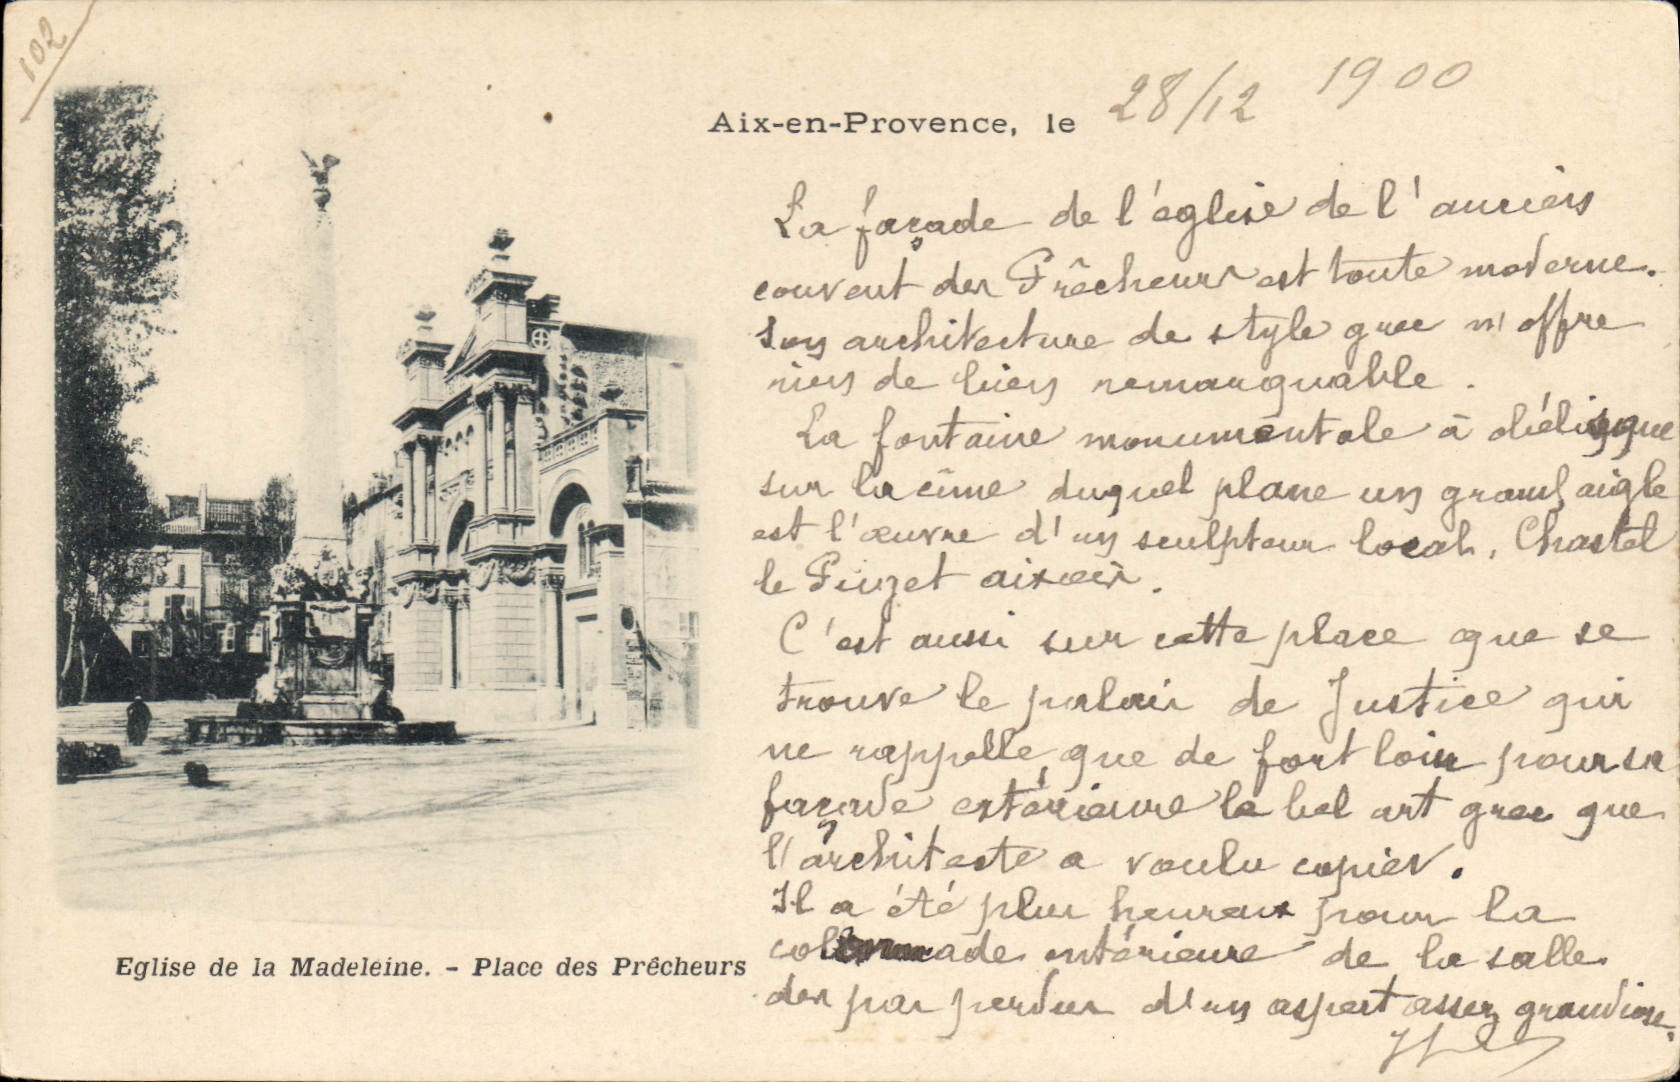 102
Aix-en-Provence, le 28/12 1900
La façade de l'église de l'ancien
couvent des Prêcheurs est toute moderne.
Son architecture de style grec n'offre
rien de bien remarquable.
La fontaine monumentale à obélisque
sur la cîme duquel plane un grand aigle
est l'œuvre d'un sculpteur local, Chastel
le Puget aixois.
C'est aussi sur cette place que se
trouve le palais de Justice qui
ne rappelle que de fort loin pour sa
façade extérieure le bel art grec que
l'architecte a voulu copier.
Il a été plus heureux pour la
colonnade intérieure de la salle
des pas perdus d'un aspect assez grandiose.
Eglise de la Madeleine. - Place des Prêcheurs